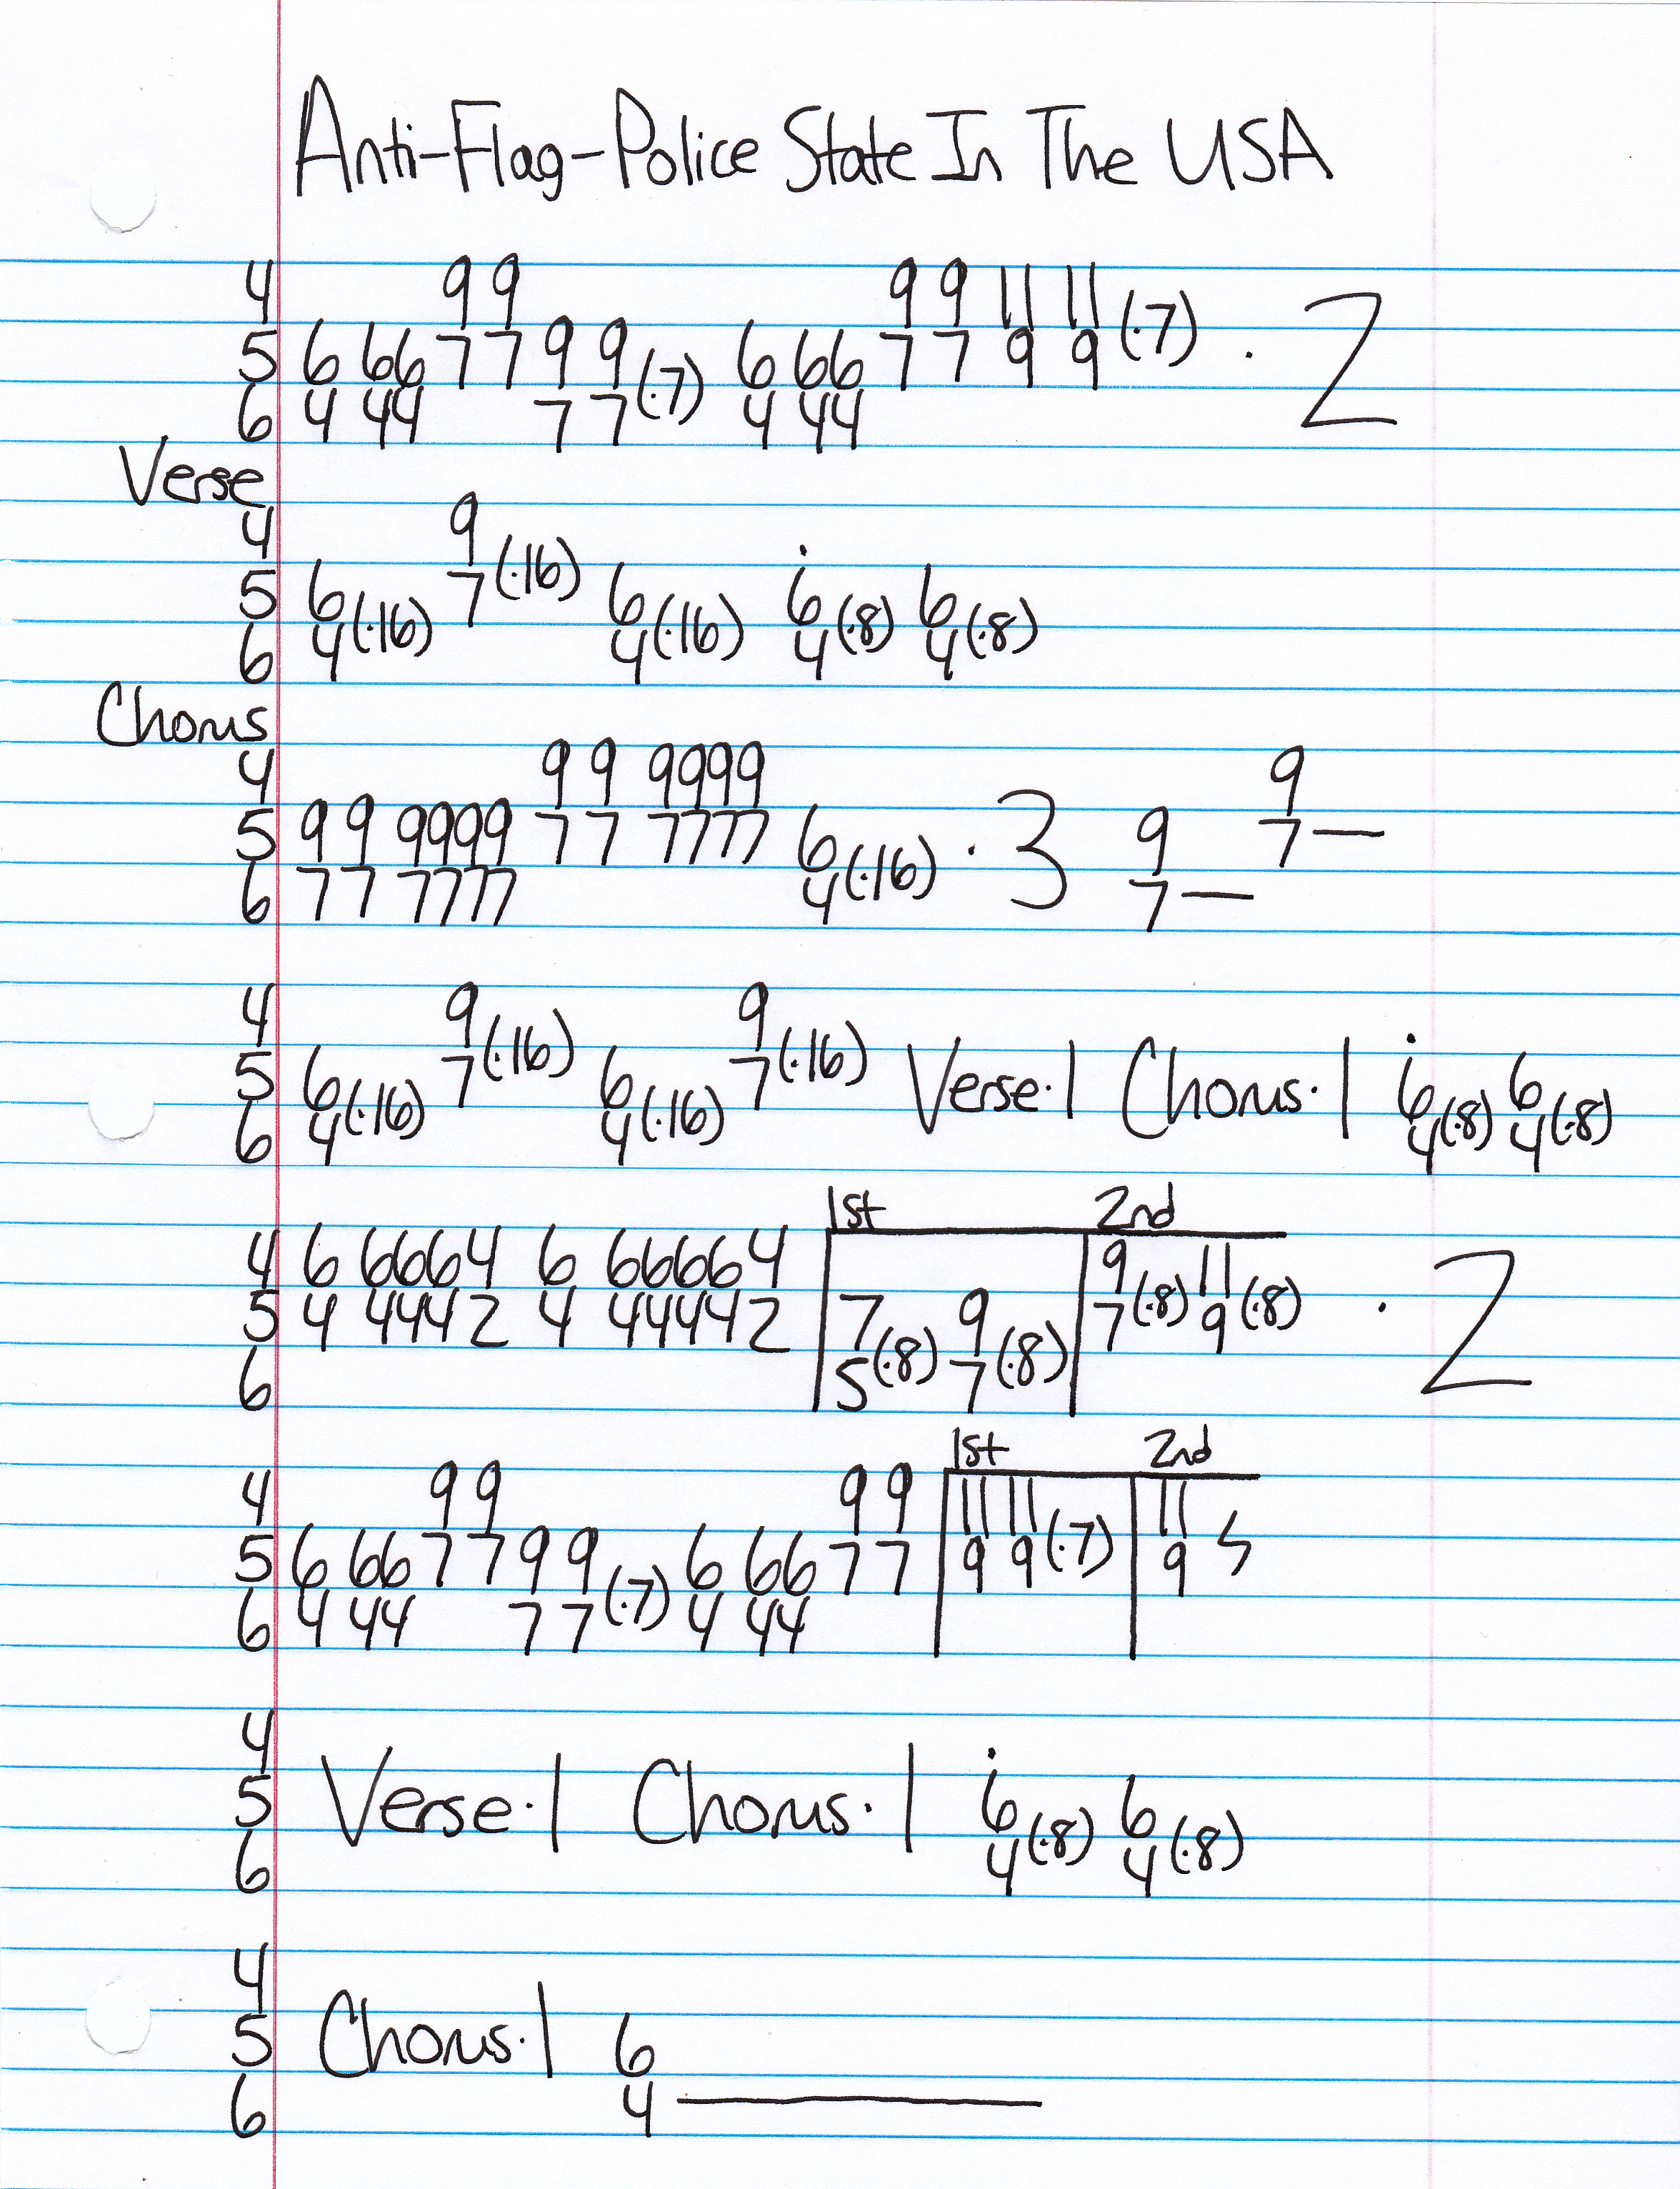 Anti-Flag-Police State In The USA
4 9 9 9 9 11 11
5 6 66 7 7 9 9 6 66 7 7 9 9 (·7) · 2
6 4 44 7 7 (·7) 4 44
Verse
4 9
5 6 7 (·16) 6 6 6
6 4 (·16) 4 (·16) 4 (·8) 4 (·8)
Chorus
4 9 9 9999 9
5 9 9 9999 7 7 7777 6 · 3 9 7 —
6 7 7 7777 4 (·16) 7 —
4 9 9
5 6 7 (·16) 6 7 (·16) Verse·1 Chorus·1 6 6
6 4 (·16) 4 (·16) 4 (·8) 4 (·8)
1st 2nd
4 6 6664 6 66664 9 11
5 4 4442 4 44442 7 9 7 (·8) 9 (·8) · 2
6 5 (·8) 7 (·8)
1st 2nd
4 9 9 9 9 11 11 11
5 6 66 7 7 9 9 6 66 7 7 9 9 (·7) 9
6 4 44 7 7 (·7) 4 44
4
5 Verse·1 Chorus·1 6 6
6 4 (·8) 4 (·8)
4
5 Chorus·1 6
6 4 —